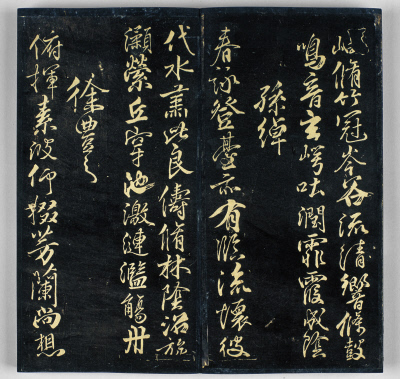 翳岫脩竹冠岑谷流清響條鼓
鳴音玄崿吐潤霏霞成陰
孫綽
春詠登臺亦有臨流懷彼
伐木蕭此良儔脩林陰沼旋
瀨縈丘穿池激連濫觴舟
徐豐之
俯揮素波仰掇芳蘭尚想